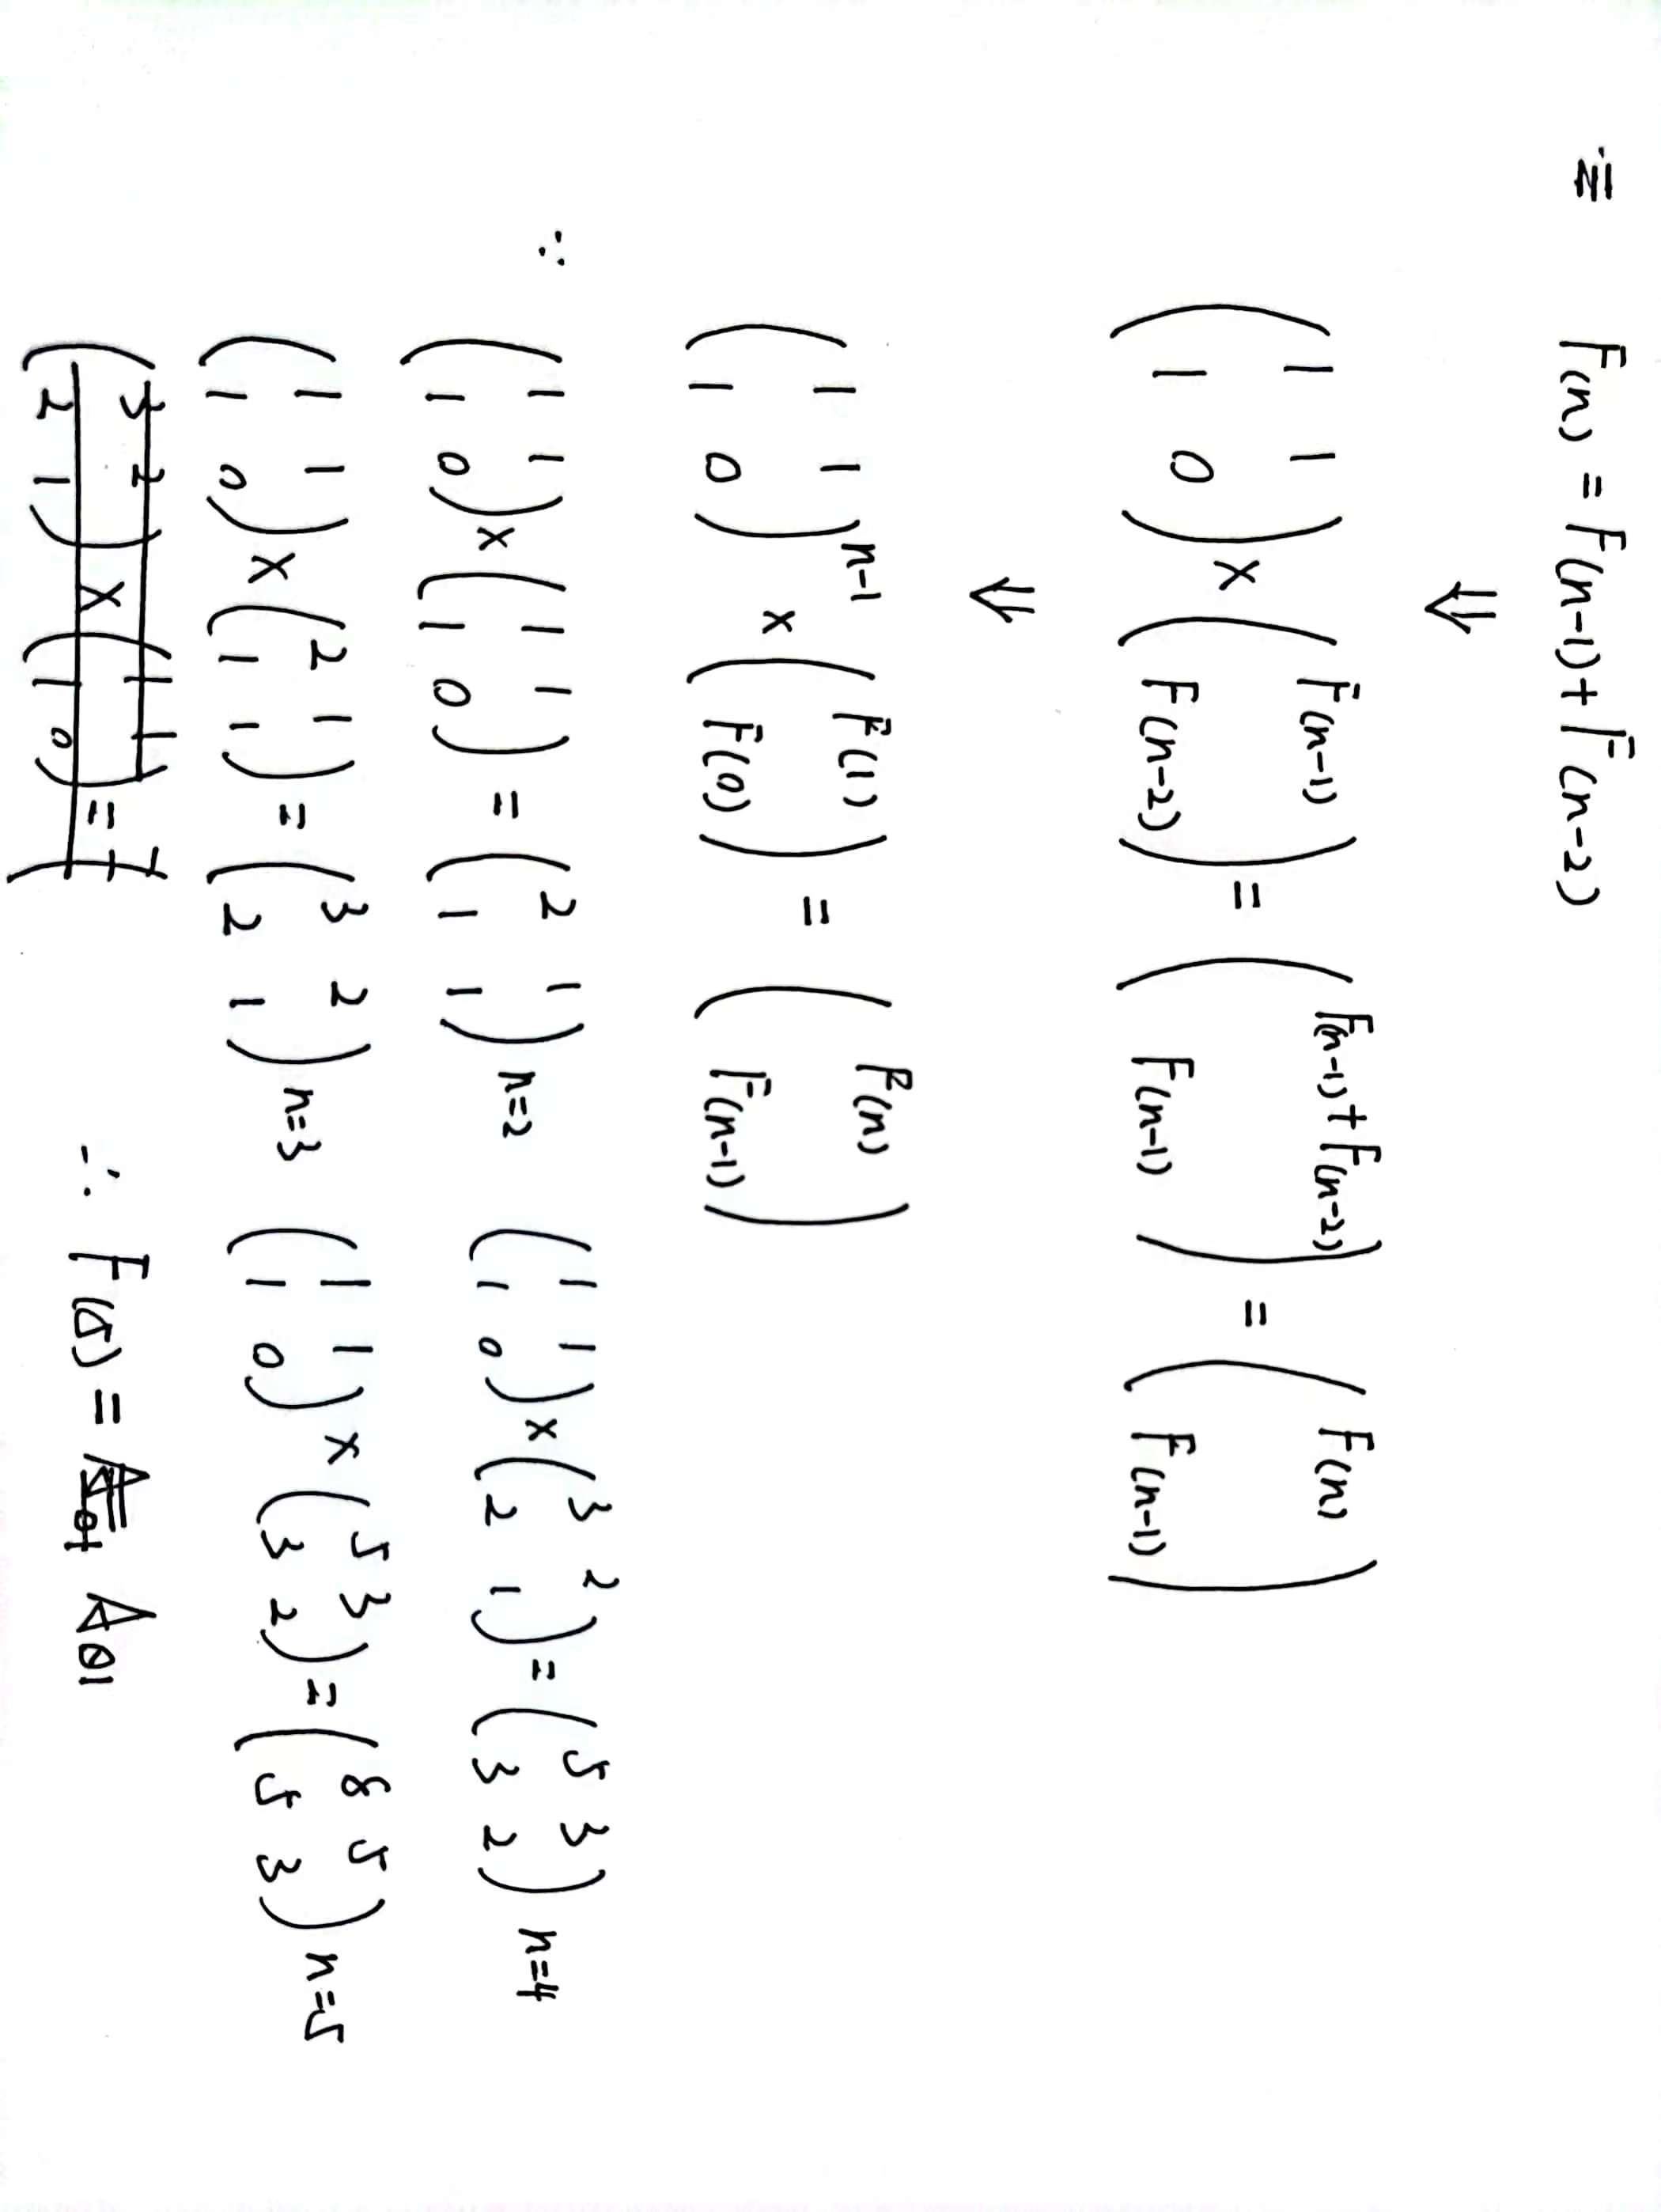 三 F(n) = F(n-1) + F(n-2)
⇓
(1 1; 1 0) × (F(n-1); F(n-2)) = (F(n-1)+F(n-2); F(n-1)) = (F(n); F(n-1))
⇓
(1 1; 1 0)^{n-1} × (F(1); F(0)) = (F(n); F(n-1))
∵ (1 1; 1 0) × (1 1; 1 0) = (2 1; 1 1) n=2 (1 1; 1 0) × (3 2; 2 1) = (5 3; 3 2) n=4
(1 1; 1 0) × (2 1; 1 1) = (3 2; 2 1) n=3 (1 1; 1 0) × (5 3; 3 2) = (8 5; 5 3) n=5
(3 2; 2 1) × (1 1; 1 0) =
∴ F(5) =